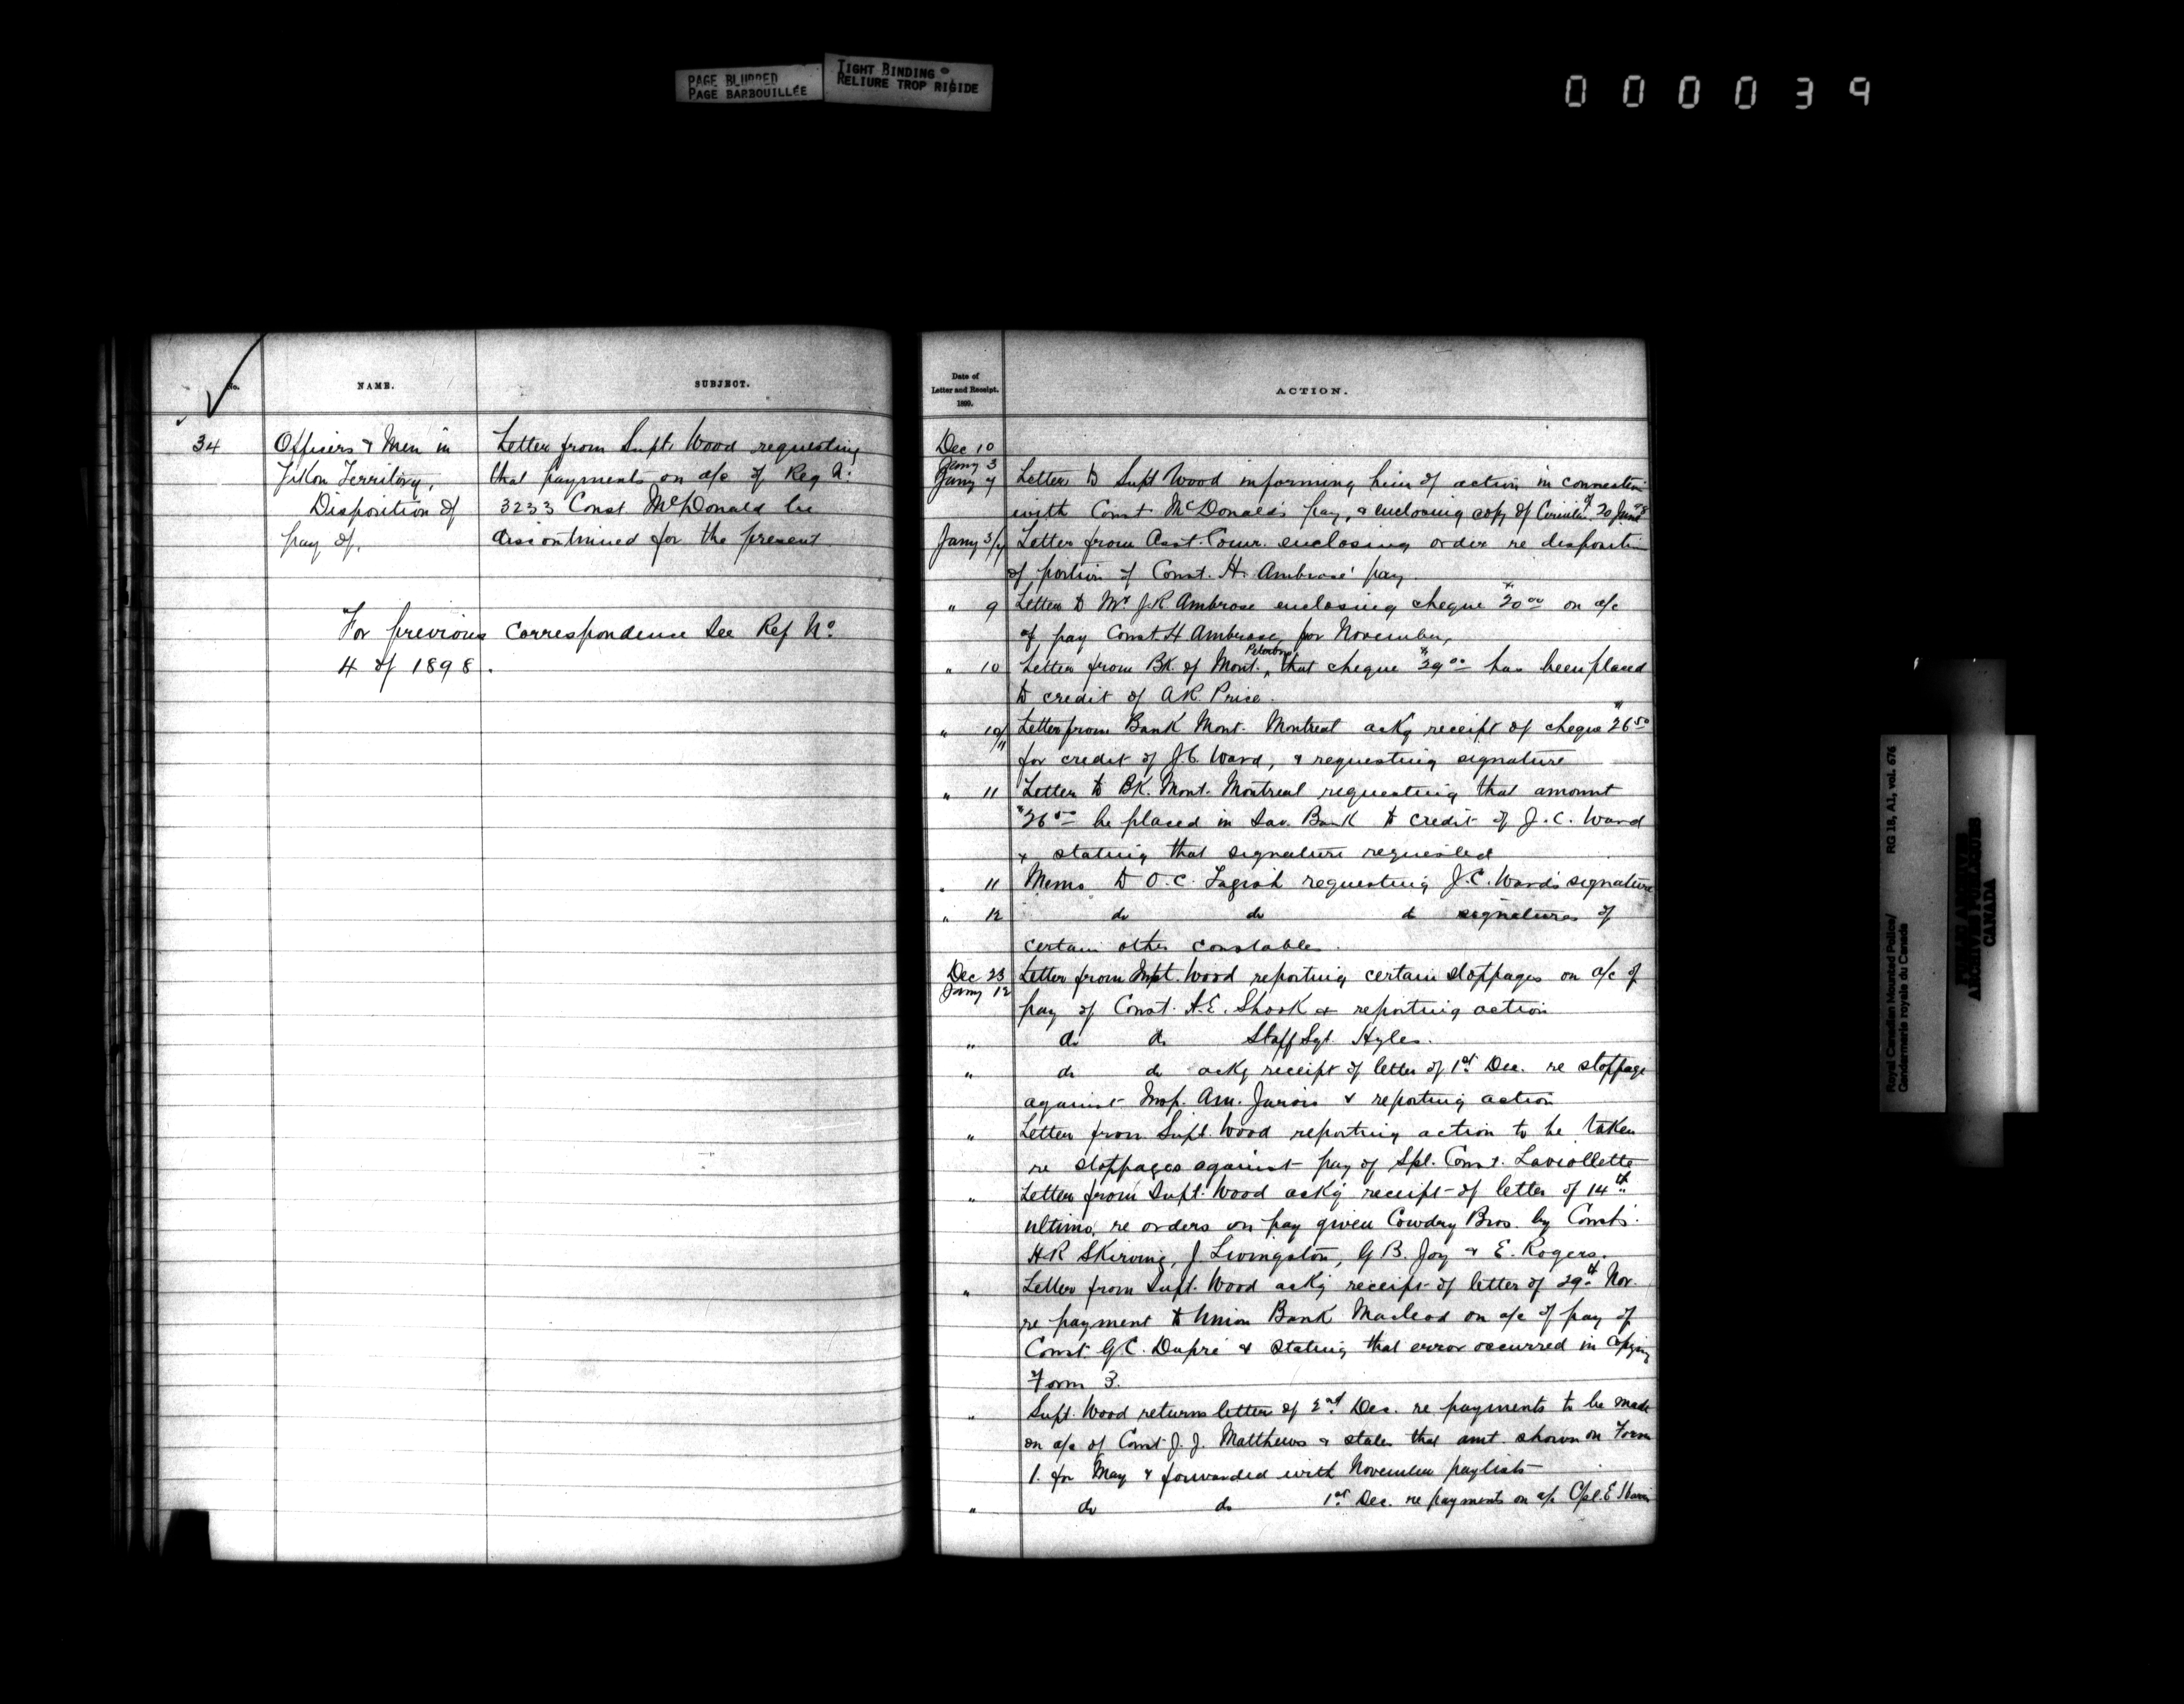 PAGE BLURRED
PAGE BARBOUILLÉE
TIGHT BINDING
RELIURE TROP RIGIDE
000039
No.
NAME.
SUBJECT.
34
Officers & Men in
Yukon Territory,
Disposition of
pay of,
Letter from Supt Wood requesting
that payments on a/c of Reg No.
3233 Const McDonald be
discontinued for the present
For previous correspondence see Ref No.
4 of 1898.
Date of
Letter and Receipt.
1899.
ACTION.
Dec 10
Jany 3
Jany 4 Letter to Supt Wood informing him of action in connection
with Const McDonald's pay, & enclosing copy of Circular of 20 June 98
Jany 3/4 Letter from Asst. Comr. enclosing order re disposition
of portion of Const. H. Ambrose' pay.
" 9 Letter to Mr J.R. Ambrose enclosing cheque $20 00 on a/c
of pay Const. H Ambrose, for November,
" 10 Letter from Bk. of Mont., that cheque $29 00 has been placed
to credit of A.R. Price.
" 10/11 Letter from Bank Mont. Montreal ackg receipt of cheque $26 50
for credit of J.C. Ward, & requesting signature
" 11 Letter to BK. Mont. Montreal requesting that amount
$26 50 be placed in Sav. Bank to credit of J.C. Ward
& stating that signature requested
" 11 Memo to O.C. Tagish requesting J.C. Ward's signature
" 12 do do do signatures of
certain other constables.
Dec 23
Jany 12 Letter from Supt. Wood reporting certain stoppages on a/c of
pay of Const. A.E. Shook & reporting action
" do do Staff Sgt. Hyles.
" do do ackg receipt of letter of 1st Dec. re stoppage
against Insp. Am. Jarvis & reporting action
" Letter from Supt. Wood reporting action to be taken
re stoppages against pay of Spl. Const. Laviollette
" Letter from Supt. Wood ackg receipt of letter of 14th
ultimo, re orders on pay given Cowdry Bros. by Consts.
H.R Skirving, J Livingston, G B. Joy & E. Rogers.
" Letter from Supt. Wood ackg receipt of letter of 29th Nov.
re payment to Union Bank Macleod on a/c of pay of
Const. G.C. Dupré & stating that error occurred in copying
Form 3.
" Supt. Wood returns letter of 2nd Dec. re payments to be made
on a/c of Const J. J. Matthews & states that amt. shown on Form
1. for May & forwarded with November paylists
" do do 1st Dec. re payments on a/c Cpl. E
RG 18, A1, vol. 676
Royal Canadian Mounted Police/
Gendarmerie royale du Canada
PUBLIC ARCHIVES
ARCHIVES PUBLIQUES
CANADA